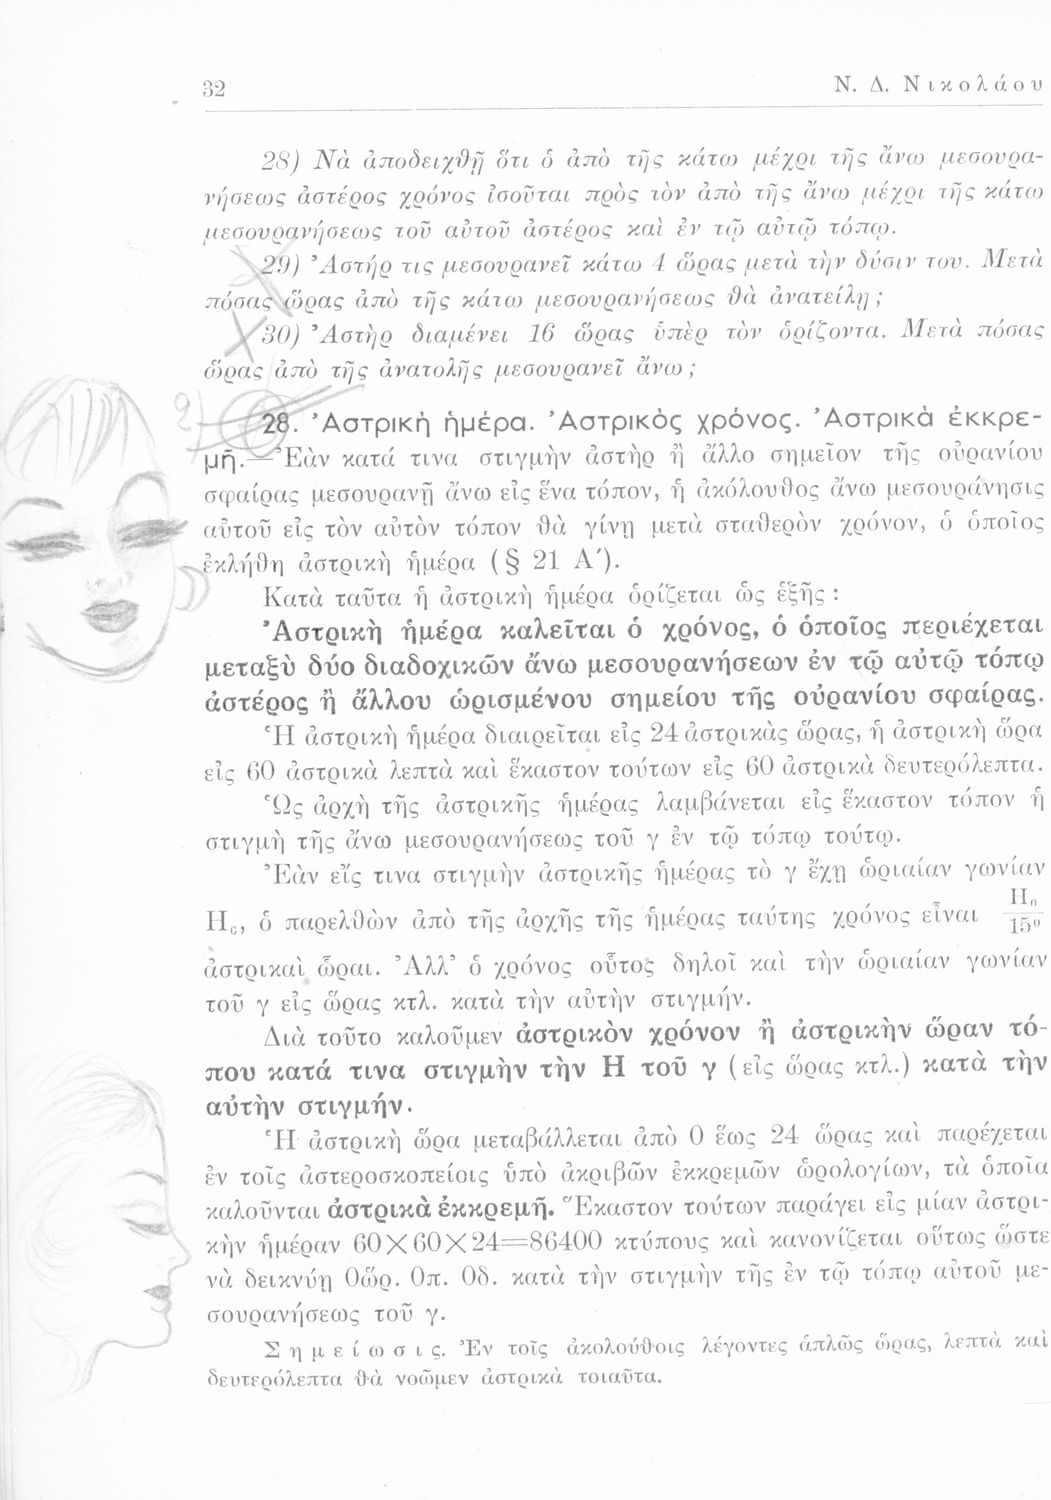 32
Ν. Δ. Νικολάου
28) Νὰ ἀποδειχθῇ ὅτι ὁ ἀπὸ τῆς κάτω μέχρι τῆς ἄνω μεσουρα-
νήσεως ἀστέρος χρόνος ἰσοῦται πρὸς τὸν ἀπὸ τῆς ἄνω μέχρι τῆς κάτω
μεσουρανήσεως τοῦ αὐτοῦ ἀστέρος καὶ ἐν τῷ αὐτῷ τόπῳ.
29) Ἀστήρ τις μεσουρανεῖ κάτω 4 ὥρας μετὰ τὴν δύσιν του. Μετὰ
πόσας ὥρας ἀπὸ τῆς κάτω μεσουρανήσεως θὰ ἀνατείλῃ ;
30) Ἀστὴρ διαμένει 16 ὥρας ὑπὲρ τὸν ὁρίζοντα. Μετὰ πόσας
ὥρας ἀπὸ τῆς ἀνατολῆς μεσουρανεῖ ἄνω ;
28. Ἀστρικὴ ἡμέρα. Ἀστρικὸς χρόνος. Ἀστρικὰ ἐκκρε-
μῆ.—Ἐὰν κατά τινα στιγμὴν ἀστὴρ ἢ ἄλλο σημεῖον τῆς οὐρανίου
σφαίρας μεσουρανῇ ἄνω εἰς ἕνα τόπον, ἡ ἀκόλουθος ἄνω μεσουράνησις
αὐτοῦ εἰς τὸν αὐτὸν τόπον θὰ γίνῃ μετὰ σταθερὸν χρόνον, ὁ ὁποῖος
ἐκλήθη ἀστρικὴ ἡμέρα (§ 21 Α΄).
Κατὰ ταῦτα ἡ ἀστρικὴ ἡμέρα ὁρίζεται ὡς ἑξῆς :
Ἀστρικὴ ἡμέρα καλεῖται ὁ χρόνος, ὁ ὁποῖος περιέχεται
μεταξὺ δύο διαδοχικῶν ἄνω μεσουρανήσεων ἐν τῷ αὐτῷ τόπῳ
ἀστέρος ἢ ἄλλου ὡρισμένου σημείου τῆς οὐρανίου σφαίρας.
Ἡ ἀστρικὴ ἡμέρα διαιρεῖται εἰς 24 ἀστρικὰς ὥρας, ἡ ἀστρικὴ ὥρα
εἰς 60 ἀστρικὰ λεπτὰ καὶ ἕκαστον τούτων εἰς 60 ἀστρικὰ δευτερόλεπτα.
Ὡς ἀρχὴ τῆς ἀστρικῆς ἡμέρας λαμβάνεται εἰς ἕκαστον τόπον ἡ
στιγμὴ τῆς ἄνω μεσουρανήσεως τοῦ γ ἐν τῷ τόπῳ τούτῳ.
Ἐὰν εἴς τινα στιγμὴν ἀστρικῆς ἡμέρας τὸ γ ἔχῃ ὡριαίαν γωνίαν
Η₀, ὁ παρελθὼν ἀπὸ τῆς ἀρχῆς τῆς ἡμέρας ταύτης χρόνος εἶναι Η₀/15⁰
ἀστρικαὶ ὧραι. Ἀλλ' ὁ χρόνος οὗτος δηλοῖ καὶ τὴν ὡριαίαν γωνίαν
τοῦ γ εἰς ὥρας κτλ. κατὰ τὴν αὐτὴν στιγμήν.
Διὰ τοῦτο καλοῦμεν ἀστρικὸν χρόνον ἢ ἀστρικὴν ὥραν τό-
που κατά τινα στιγμὴν τὴν Η τοῦ γ (εἰς ὥρας κτλ.) κατὰ τὴν
αὐτὴν στιγμήν.
Ἡ ἀστρικὴ ὥρα μεταβάλλεται ἀπὸ 0 ἕως 24 ὥρας καὶ παρέχεται
ἐν τοῖς ἀστεροσκοπείοις ὑπὸ ἀκριβῶν ἐκκρεμῶν ὡρολογίων, τὰ ὁποῖα
καλοῦνται ἀστρικὰ ἐκκρεμῆ. Ἕκαστον τούτων παράγει εἰς μίαν ἀστρι-
κὴν ἡμέραν 60×60×24=86400 κτύπους καὶ κανονίζεται οὕτως ὥστε
νὰ δεικνύῃ 0ὥρ. 0π. 0δ. κατὰ τὴν στιγμὴν τῆς ἐν τῷ τόπῳ αὐτοῦ με-
σουρανήσεως τοῦ γ.
Σημείωσις. Ἐν τοῖς ἀκολούθοις λέγοντες ἁπλῶς ὥρας, λεπτὰ καὶ
δευτερόλεπτα θὰ νοῶμεν ἀστρικὰ τοιαῦτα.